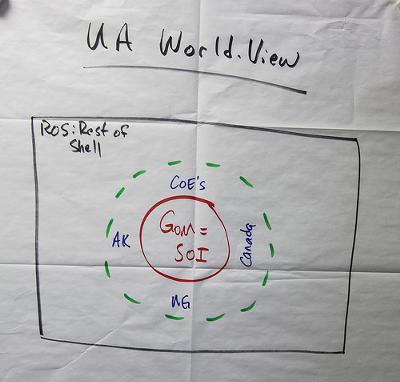 UA World.View
ROS: Rest of
Shell
COE's
AK
GOM =
SOI
Canada
NG